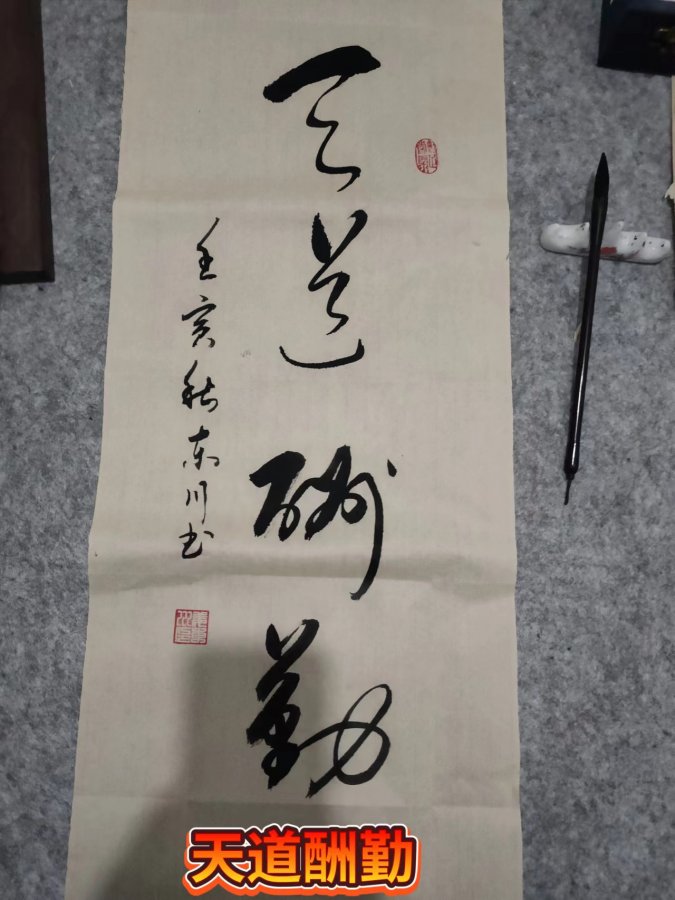 天道酬勤
壬寅秋东川书
天道酬勤